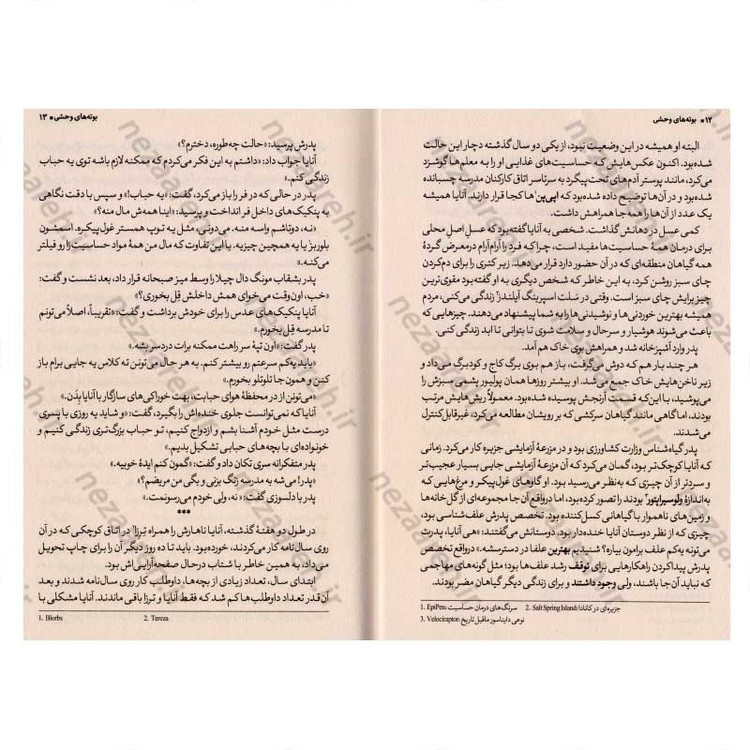 ۱۲ • بوته‌های وحشی
البته او همیشه در این وضعیت نبود، از یکی دو سال گذشته دچار این حالت
شده‌بود. اکنون عکس‌هایش که حساسیت‌های غذایی او را به معلم‌ها گوشزد
می‌کرد، مانند پوستر آدم‌های تحت‌پیگرد به سرتاسر اتاق کارکنان مدرسه چسبانده
شده‌بود و در آن‌ها توضیح داده شده‌بود که اپی‌پن¹ها کجا قرار دارند. آنایا همیشه
یک عدد از آن‌ها را همه‌جا همراهش داشت.
کمی عسل در دهانش گذاشت. شخصی به آنایا گفته‌بود که عسلِ اصلِ محلی
برای درمان همهٔ حساسیت‌ها مفید است، چرا که فرد را آرام‌آرام در معرض گردهٔ
همه گیاهان منطقه‌ای که در آن حضور دارد قرار می‌دهد. زیر کتری را برای دم‌کردن
چای سبز روشن کرد، به این خاطر که شخص دیگری به او گفته‌بود مقوی‌ترین
چیز برایش چای سبز است. وقتی در سَلت اسپرینگ آیلند² زندگی می‌کنی، مردم
همیشه بهترین خوردنی‌ها و نوشیدنی‌ها را به شما پیشنهاد می‌دهند. چیزهایی که
باعث می‌شوند هوشیار و سرحال و سلامت شوی تا بتوانی تا ابد زندگی کنی.
پدر وارد آشپزخانه شد و همراهش بوی خاک هم آمد.
هر چند بار هم که دوش می‌گرفت، باز هم بوی برگ کاج و کود برگ می‌داد و
زیر ناخن‌هایش خاک جمع می‌شد. او بیشتر روزها همان پولیور پشمی سبزش را
می‌پوشید، با این‌که قسمت آرنجش پوسیده شده‌بود. معمولاً ریش‌هایش مرتب
بودند، اما گاهی مانند گیاهان سرکشی که بر رویشان مطالعه می‌کرد، غیرقابل‌کنترل
می‌شدند.
پدر گیاه‌شناس وزارت کشاورزی بود و در مزرعهٔ آزمایشی جزیره کار می‌کرد. زمانی
که آنایا کوچک‌تر بود، گمان می‌کرد که آن مزرعهٔ آزمایشی جایی بسیار عجیب‌تر
و سردتر از آن چیزی که به‌نظر می‌رسید بود. او گاوهای غول‌پیکر و مرغ‌هایی که
به‌اندازهٔ ولوسیراپتور³ بودند را تصور کرده‌بود، اما درواقع آن‌جا مجموعه‌ای از گل‌خانه‌ها
و زمین‌های ناهموار با گیاهانی کسل‌کننده بود. تخصص پدرش علف‌شناسی بود،
چیزی که از نظر دوستان آنایا خنده‌دار بود، دوستانش می‌گفتند: «هی آنایا، پدرت
می‌تونه یه‌کم علف برامون بیاره؟ شنیدیم بهترین علف در دسترسشه.» درواقع تخصص
پدرش پیداکردن راهکارهایی برای توقف رشد علف‌ها بود؛ مثل گونه‌های مهاجمی
که نباید آن‌جا باشند، ولی وجود داشتند و برای زندگی دیگر گیاهان مضر بودند.
1. EpiPens سرنگ‌های درمان حساسیت 2. Salt Spring Island جزیره‌ای در کانادا
3. Velociraptor نوعی دایناسور ماقبل تاریخ
بوته‌های وحشی • ۱۳
پدرش پرسید: «حالت چه‌طوره، دخترم؟»
آنایا جواب داد: «داشتم به این فکر می‌کردم که ممکنه لازم باشه توی یه حباب
زندگی کنم.»
پدر در حالی که در فر را باز می‌کرد، گفت: «یه حباب!» و سپس با دقت نگاهی
به پنکیک‌های داخل فر انداخت و پرسید: «اینا همه‌ش مال منه؟»
«نه، دوتاشم واسه منه. می‌دونی، مثل یه توپ همستر غول‌پیکره. اسمشون
بلوربز¹ یا یه همچین چیزیه. با این تفاوت که مال من همهٔ مواد حساسیت‌زا رو فیلتر
می‌کنه.»
پدر بشقاب مونگ دال چیلا را وسط میز صبحانه قرار داد، بعد نشست و گفت:
«خب، اون وقت می‌خوای همش داخلش قِل بخوری؟»
آنایا پنکیک‌های عدس را برای خودش برداشت و گفت: «تقریباً، اصلاً می‌تونم
تا مدرسه قِل بخورم.»
پدر گفت: «اون تپهٔ سر راهت ممکنه برات دردسر بشه.»
«باید یه‌کم سرعتم رو بیشتر کنم. به هر حال می‌تونن ته کلاس یه جایی برام باز
کنن و همون جا تلوتلو بخورم.»
«می‌تونن از در محفظهٔ هوای حبابت، بهت خوراکی‌های سازگار با آنایا بِدَن.»
آنایا که نمی‌توانست جلوی خنده‌اش را بگیرد، گفت: «و شاید یه روزی با پسری
درست مثل خودم آشنا بشم و ازدواج کنیم، تو حباب بزرگ‌تری زندگی کنیم و
خونواده‌ای با بچه‌های حبابی تشکیل بدیم.»
پدر متفکرانه سری تکان داد و گفت: «گمون کنم ایدهٔ خوبیه.»
«پدر! می‌شه به مدرسه زنگ بزنی و بگی من مریضم؟»
پدر با دلسوزی گفت: «نه، ولی خودم می‌رسونمت.»
***
در طول دو هفتهٔ گذشته، آنایا ناهارش را همراه تِرِزا² در اتاق کوچکی که در آن
روی سال‌نامه کار می‌کردند، خورده‌بود. باید تا ده روز دیگر آن را برای چاپ تحویل
می‌داد، به همین خاطر با شتاب درحال صفحه‌آرایی‌اش بود.
ابتدای سال، تعداد زیادی از بچه‌ها، داوطلب کار روی سال‌نامه شدند و بعد
آن‌قدر تعداد داوطلب‌ها کم شد که فقط آنایا و تِرِزا باقی ماندند. آنایا مشکلی با
1. Blorbs 2. Tereza
nezaareh.ir